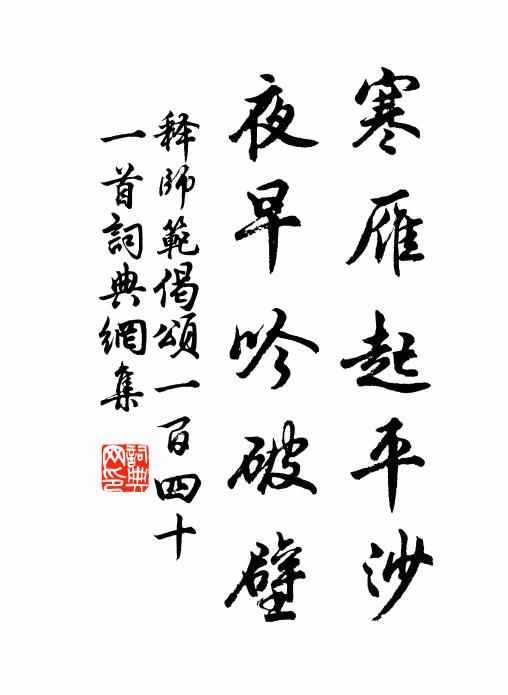 寒雁起平沙
夜早吟破壁
释師範偈頌一百四十
一首詞典網集
詞典網印